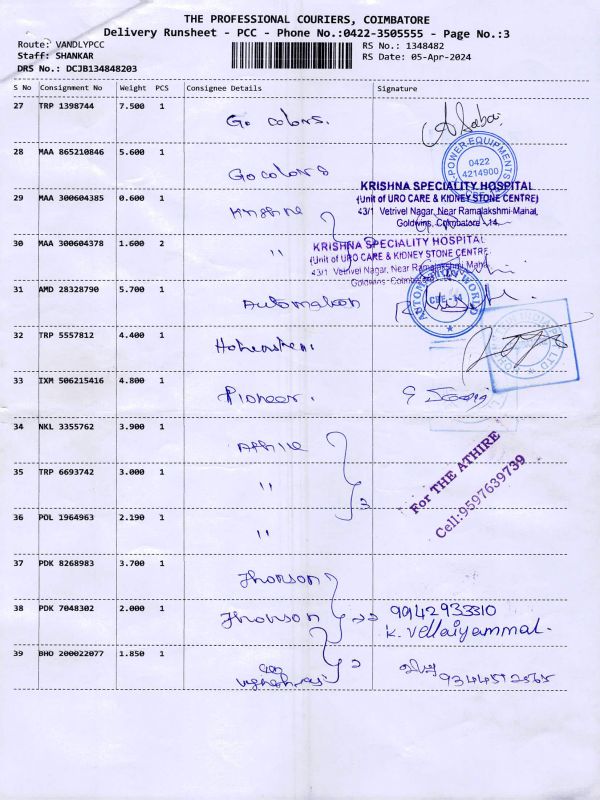 THE PROFESSIONAL COURIERS, COIMBATORE
Delivery Runsheet - PCC - Phone No.:0422-3505555 - Page No.:3
Route: VANDLYPCC
RS No.: 1348482
Staff: SHANKAR
RS Date: 05-Apr-2024
DRS No.: DCJB134848203
S No Consignment No Weight PCS Consignee Details Signature
27 TRP 1398744 7.500 1 Go colors.
28 MAA 865210846 5.600 1 Go colors
POWER EQUIPMENTS
0422
4214900
29 MAA 300604385 0.600 1
KRISHNA SPECIALITY HOSPITAL
(Unit of URO CARE & KIDNEY STONE CENTRE)
43/1 Vetrivel Nagar, Near Ramalakshmi Mahal,
Goldwins, Coimbatore -14.
30 MAA 300604378 1.600 2 "
KRISHNA SPECIALITY HOSPITAL
(Unit of URO CARE & KIDNEY STONE CENTRE
43/1 Vetrivel Nagar, Near Ramalakshmi Maha
Goldwins, Coimbatore
31 AMD 28328790 5.700 1
32 TRP 5557812 4.400 1
33 IXM 506215416 4.800 1 Pioneer.
34 NKL 3355762 3.900 1
35 TRP 6693742 3.000 1 "
For THE ATHIRE
Cell:9597639739
36 POL 1964963 2.190 1 "
3
37 PDK 8268983 3.700 1 Jhonson
38 PDK 7048302 2.000 1 Jhonson
9942933310
K. Vellaiyammal.
39 BHO 200022077 1.850 1